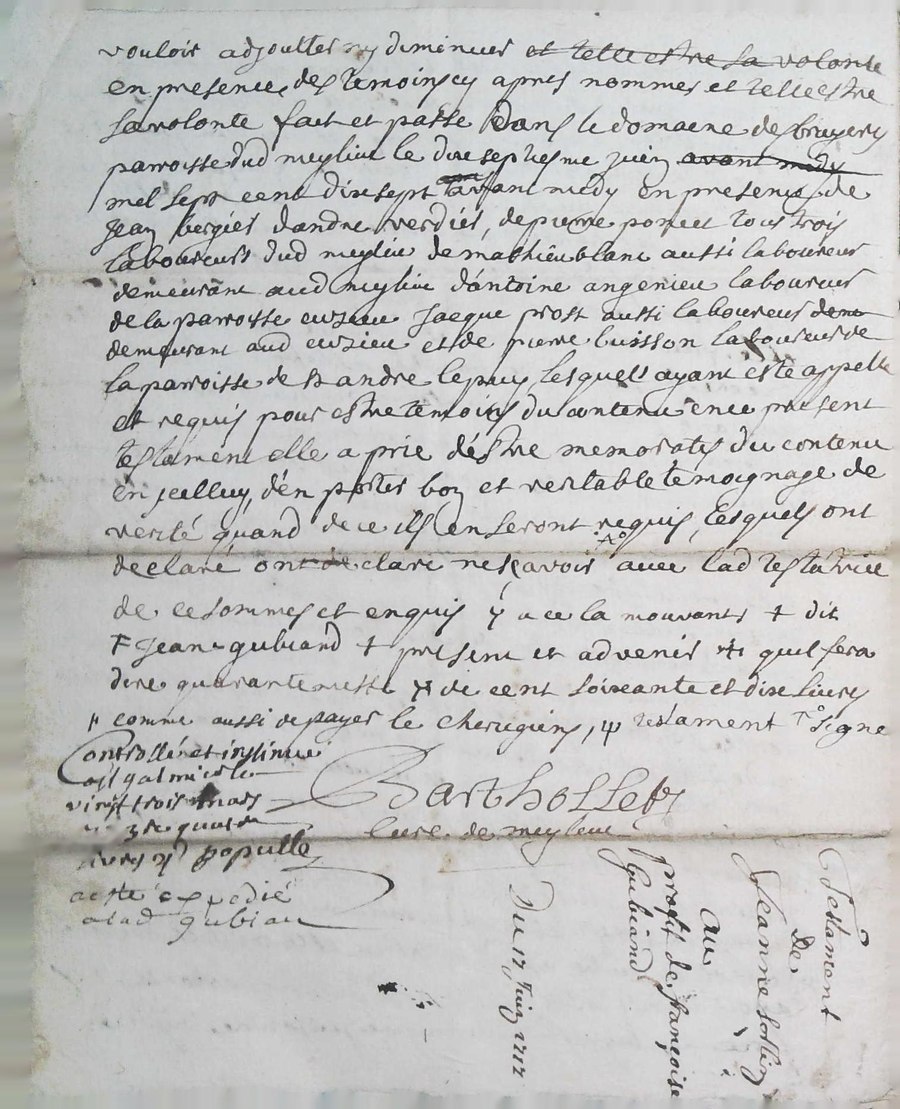 vouloir adjoulter ny diminuer et telle estre sa volonté
en presence des temoins cy apres nommes et telle estre
sa volonte fait et passé dans le domaene des bruyers
parroisse dud meylieu le dixseptiesme juin avant midy
mil sept cent dix sept avant midy en presence de
Jean vergies dandre verdiés, de pierre poncet tous trois
laboureurs dud meylieu de mathieu blanc aussi laboureur
demeurant aud meylieu dántoine angenieu laboureur
de la parroisse cuzieu Jacque prost aussi laboureur dem
demeurant aud cuzieu et de pierre buisson laboureur de
la parroisse de st andre le puy lesquels ayant este appelle
et requis pour estre temoins du contenu en ce present
testament elle a prie déstre memoratifs du contenu
en jcelluy, dén porter bon et veritable temoignage de
verité quand de ce ils en seront requis, Lesquels ont
declaré ont de clare ne sçavoir avec lad testatrice
de ce sommes et enquis y a ce la mouvants + dit
Jean gubiand + present et advenir quil fera
dire quarante messe de cent soixante et dix livres
comme aussi de payer le cherugien, testament signe
Controllé et insinué
a st galmier le
vingt trois mars
Barthollety
curé de meylieu
populle
acte expedié
a lad gubian
Testament
De
Jeanne
au
profit de françoise
Gubiand
Du 17 Juin 1717